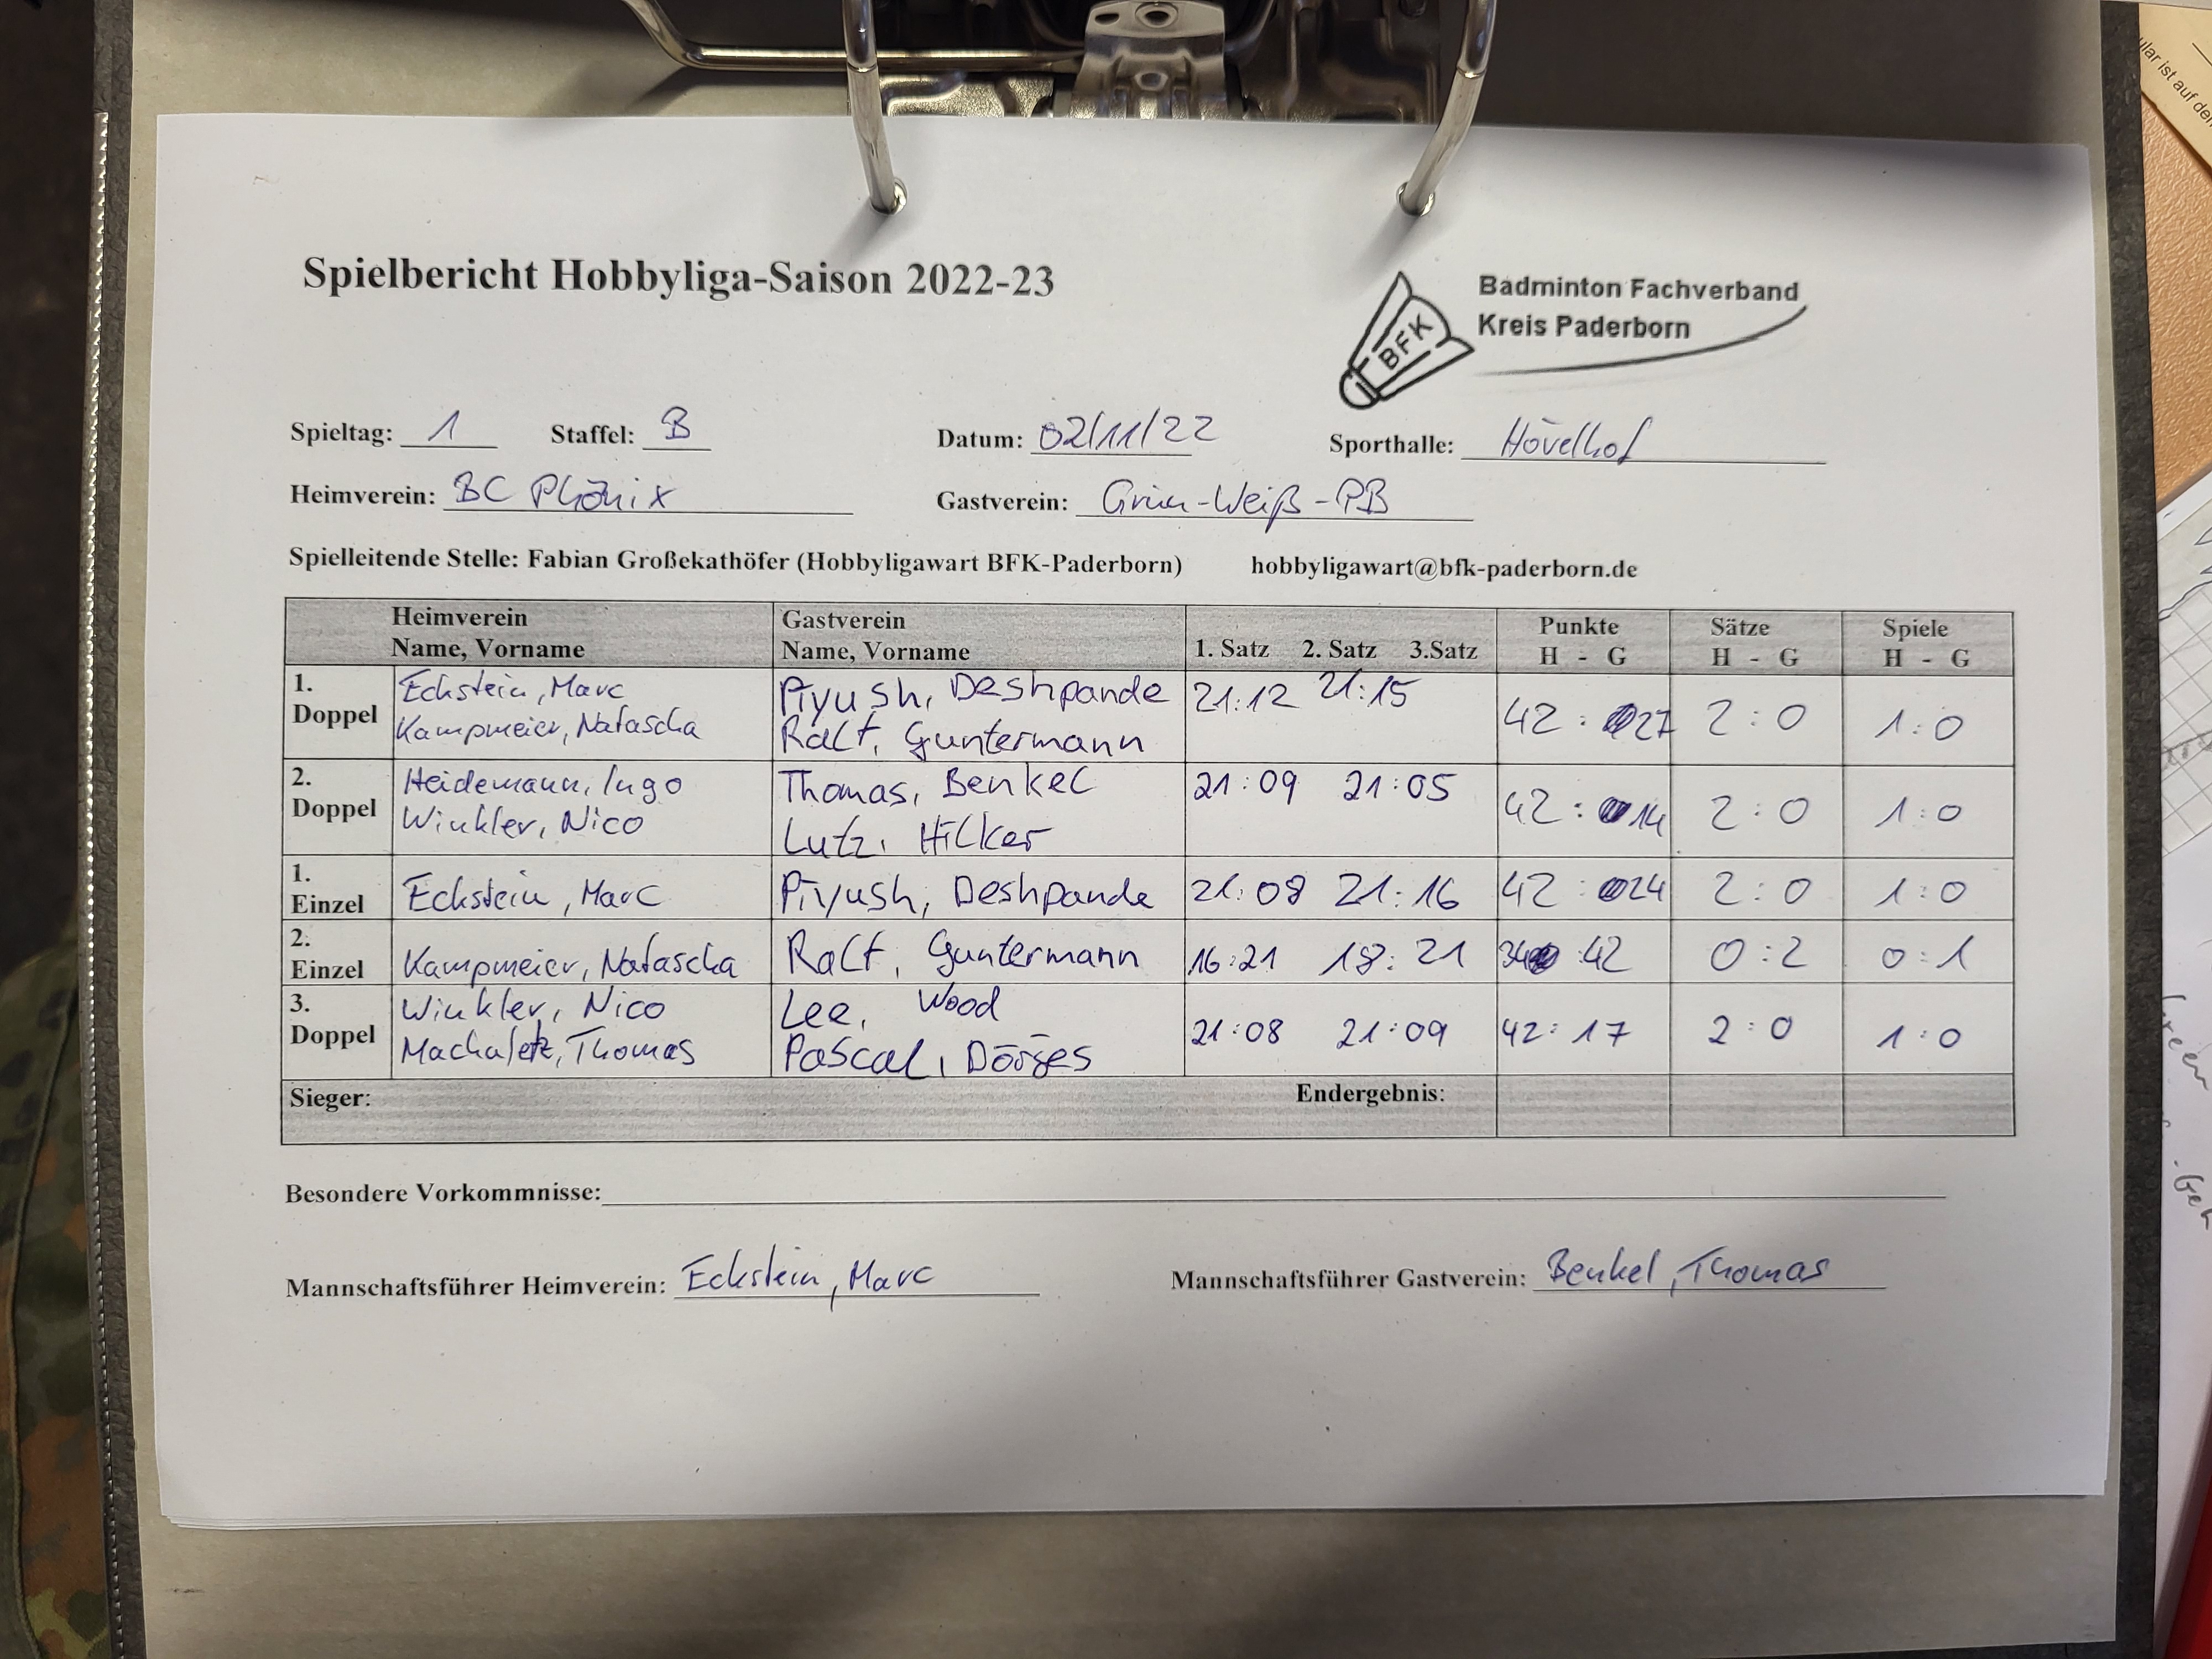 ular ist auf der
Spielbericht Hobbyliga-Saison 2022-23
BFK
Badminton Fachverband
Kreis Paderborn
Spieltag: 1 Staffel: B Datum: 02/11/22 Sporthalle: Hövelhof
Heimverein: BC Phönix Gastverein: Grün-Weiß-PB
Spielleitende Stelle: Fabian Großekathöfer (Hobbyligawart BFK-Paderborn) hobbyligawart@bfk-paderborn.de
Heimverein Gastverein Punkte Sätze Spiele
Name, Vorname Name, Vorname 1. Satz 2. Satz 3.Satz H - G H - G H - G
1. Eckstein, Marc Piyush, Deshpande 21:12 21:15
Doppel Kampmeier, Natascha Ralf, Guntermann 42 : 27 2 : 0 1 : 0
2. Heidemann, Ingo Thomas, Benkel 21:09 21:05
Doppel Winkler, Nico Lutz, Hilker 42 : 14 2 : 0 1 : 0
1.
Einzel Eckstein, Marc Piyush, Deshpande 21:08 21:16 42 : 24 2 : 0 1 : 0
2.
Einzel Kampmeier, Natascha Ralf, Guntermann 16:21 18:21 34 : 42 0 : 2 0 : 1
3. Winkler, Nico Lee, Wood
Doppel Machaletz, Thomas Pascal, Dörges 21:08 21:09 42 : 17 2 : 0 1 : 0
Sieger: Endergebnis:
Besondere Vorkommnisse:
Mannschaftsführer Heimverein: Eckstein, Marc Mannschaftsführer Gastverein: Benkel, Thomas